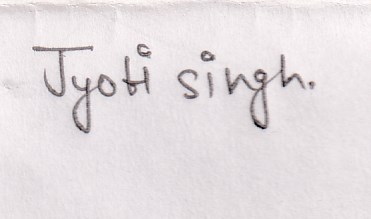 Jyoti singh.